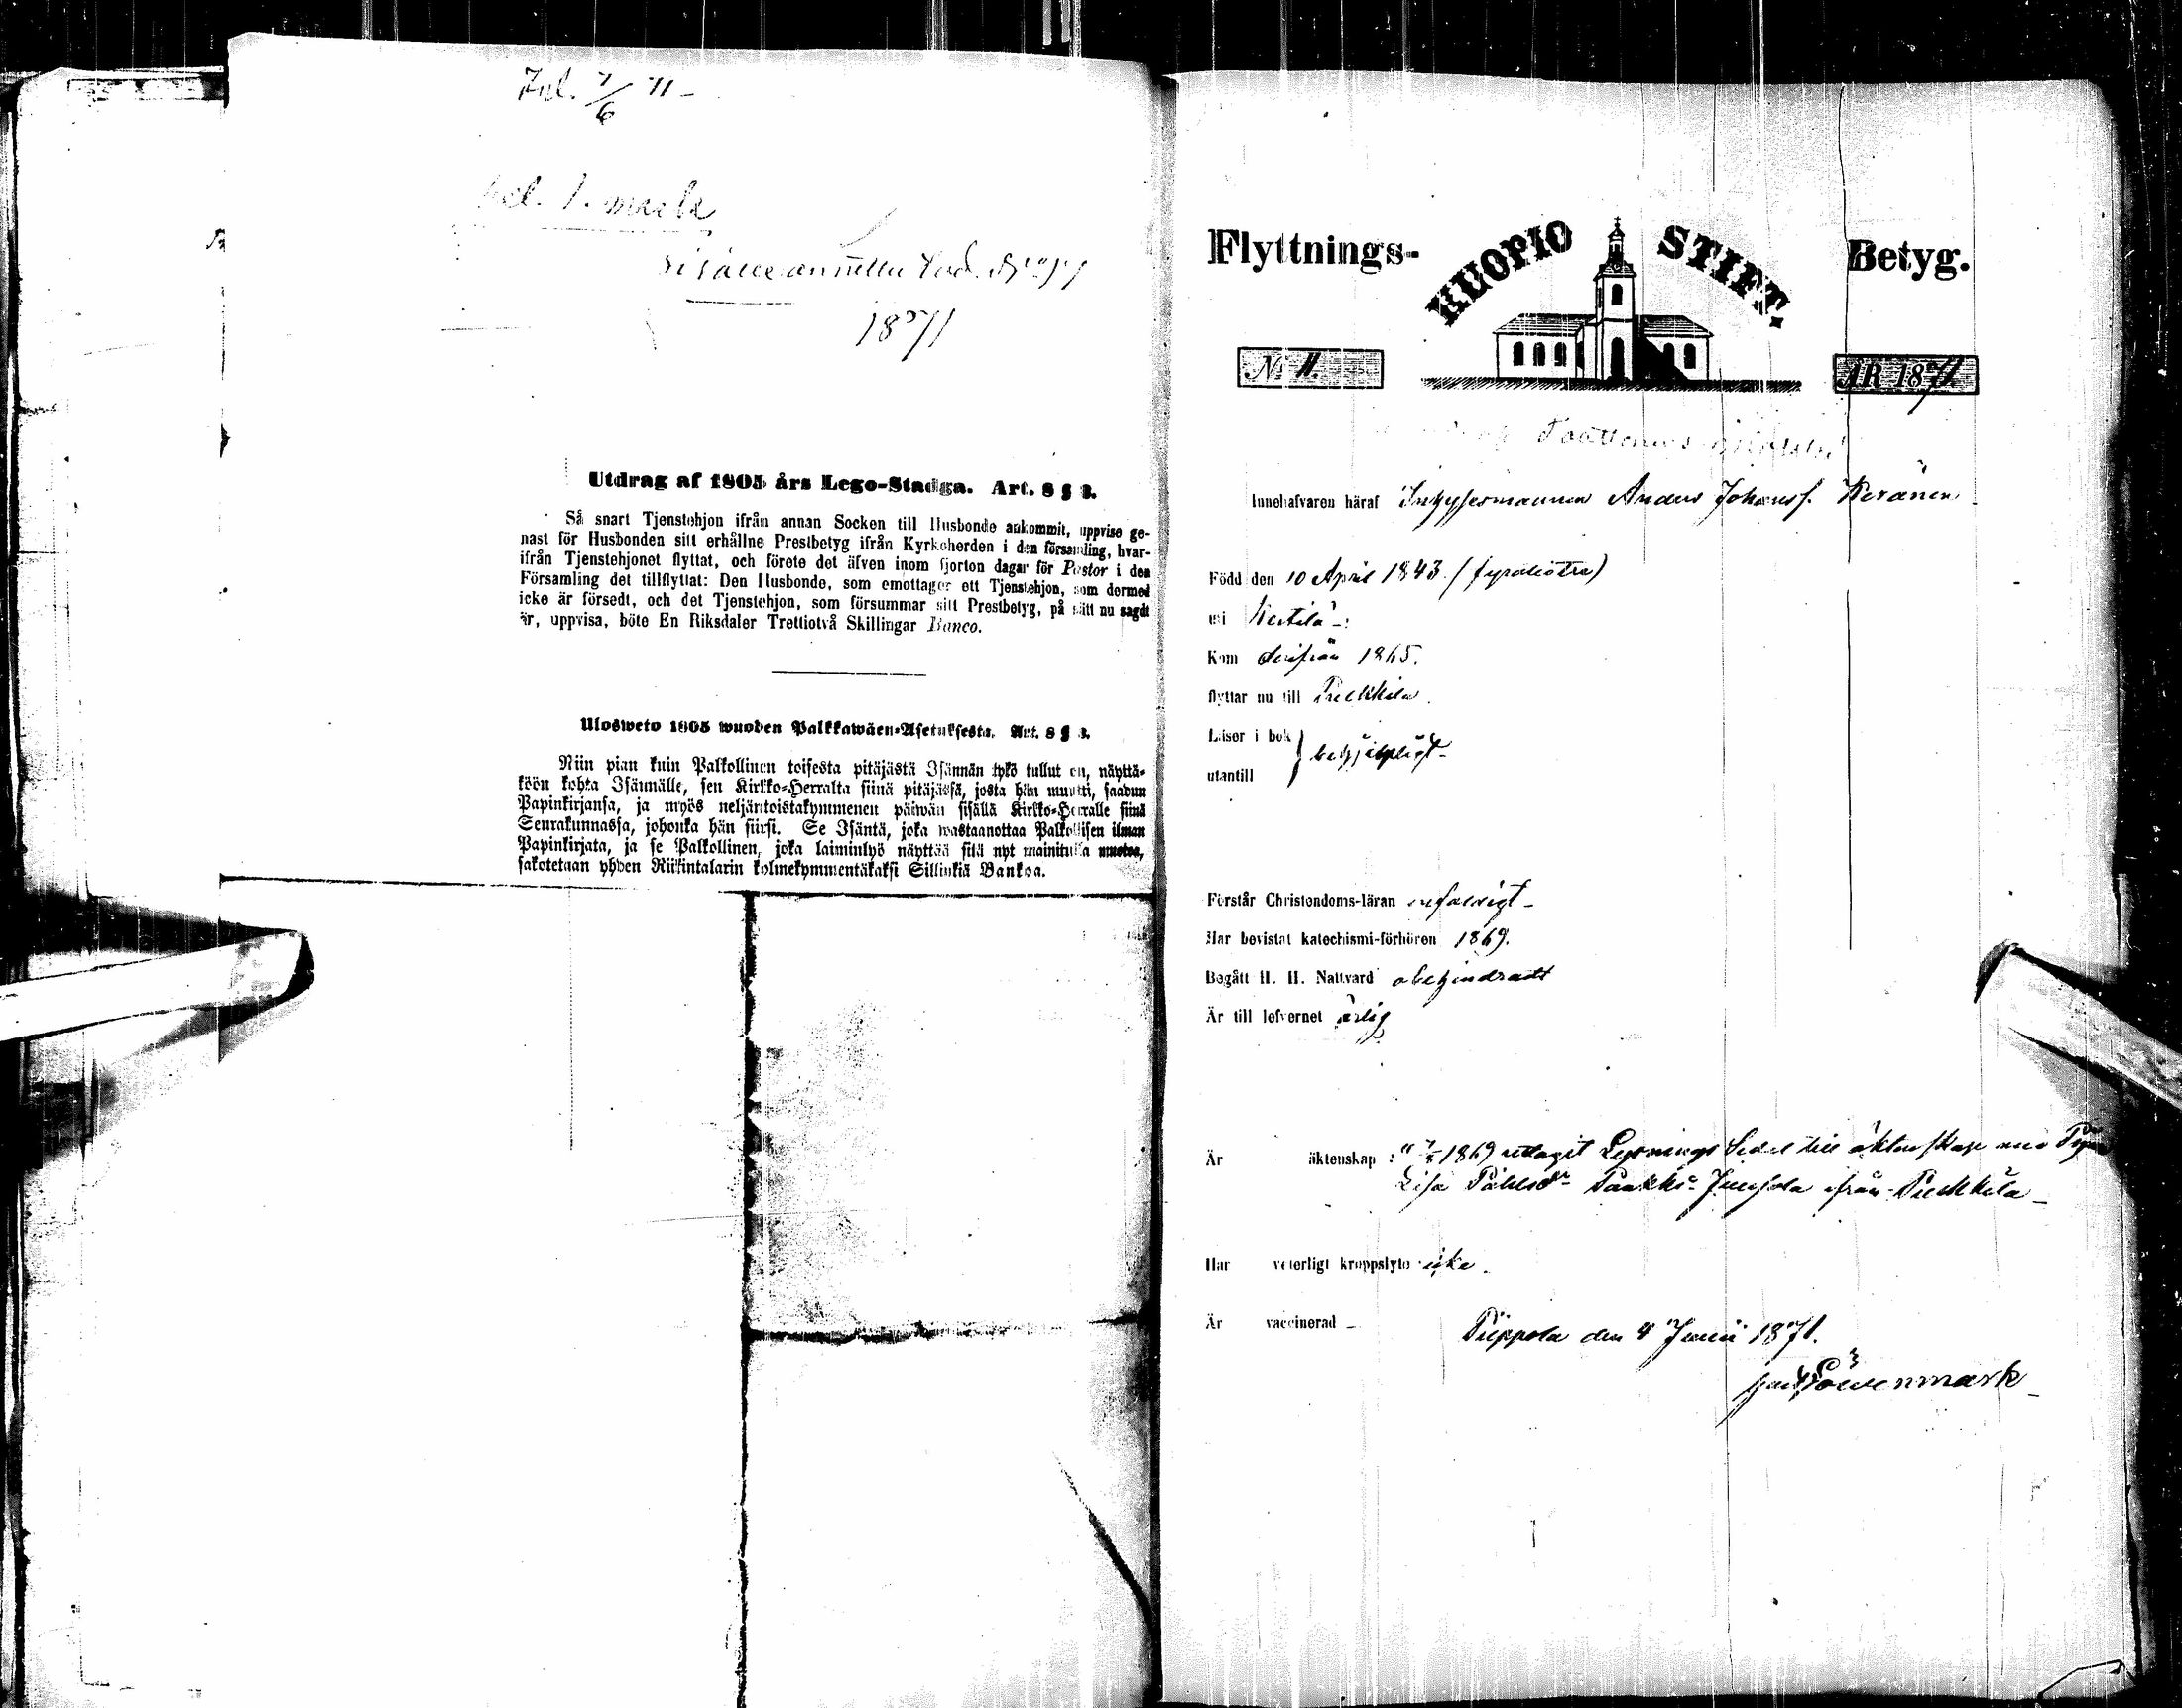 Inl. 7/6 71 -
1871
Utdrag af 1805 års Lego-Stadga. Art. 8 § 3.
Så snart Tjenstehjon ifrån annan Socken till Husbonde ankommit, uppvise ge-
nast för Husbonden sitt erhållne Prestbetyg ifrån Kyrkoherden i den församling, hvar-
ifrån Tjenstehjonet flyttat, och förete det äfven inom fjorton dagar för Pastor i den
Församling det tillflyttat: Den Husbonde, som emottager ett Tjenstehjon, som dermed
icke är försedt, och det Tjenstehjon, som försummar sitt Prestbetyg, på sätt nu sagdt
är, uppvisa, böte En Riksdaler Trettiotvå Skillingar Banco.
Ulosweto 1805 wuoden Palkkawäen-Asetuksesta. Art. 8 § 3.
Niin pian kuin Palkollinen toisesta pitäjästä Isännän tykö tullut on, näyttä-
köön kohta Isännälle, sen Kirkko-Herralta siinä pitäjässä, josta hän muutti, saadun
Papinkirjansa, ja myös neljäntoistakymmenen päiwän sisällä Kirkko-Herralle siinä
Seurakunnassa, johonka hän siirsi. Se Isäntä, joka wastaanottaa Palkollisen ilman
Papinkirjata, ja se Palkollinen, joka laiminlyö näyttää sitä nyt mainitulla muotoa,
sakotetaan yhden Riikintalarin kolmekymmentäkaksi Sillinkiä Bankoa.
Flyttnings- KUOPIO STIFT. Betyg.
No 11. ÅR 1871
Innehafvaren häraf Inhysesmannen Anders Johanss. Keränen
Född den 10 April 1843. (fyratiotre)
uti Kestilä -:
Kom derifrån 1865.
flyttar nu till Pulkkila.
Läser i bok
behjelpligt -
utantill
Förstår Christendoms-läran enfaldigt -
Har bevistat katechismi-förhören 1869.
Begått H. H. Nattvard obehindradt
Är till lefvernet ärlig
Är äktenskap : 1869 uttagit Lysnings Sedel till äktenskap med Pigan
Lisa Påhlsdr Junsola ifrån Pulkkila -
Har veterligt kroppslyte icke.
Är vaccinerad -
Piippola den 4 Junii 1871.
Löwenmark -